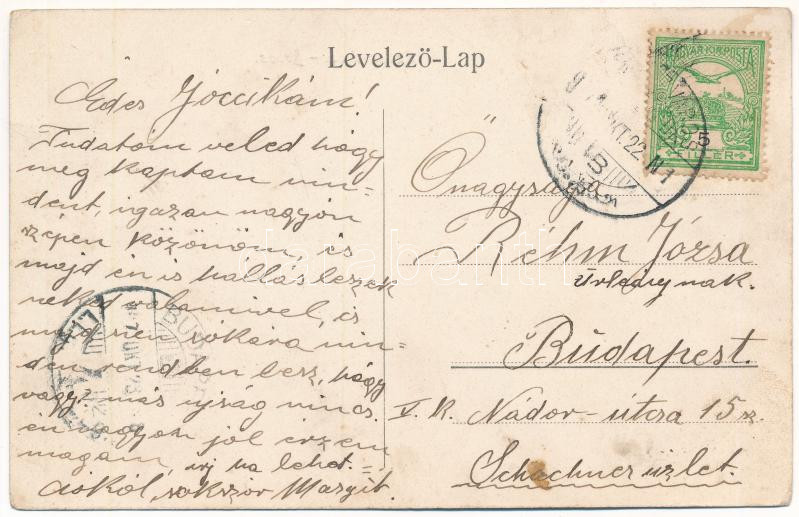 Levelező-Lap
Édes Jóccikám!
Tudatom veled hogy
meg kaptam min-
dent, igazan nagyon
szépen köszönöm, és
majd én is hallás leszek
neked valamivel, is
majd nem sokára min-
den rendben lesz, hogy
vagy? más ujság nincs.
én nagyon jól érzem
magam, irj ha lehet.
Csókol, sokszor Margit.
MAGYAR KIR. POSTA
5
FILLÉR
Őnagysága
Réhm Józsa
Urleánynak.
Budapest.
V. k. Nádor-útca 15 sz.
Schechner üzlet.
darabanth
BUDAPEST